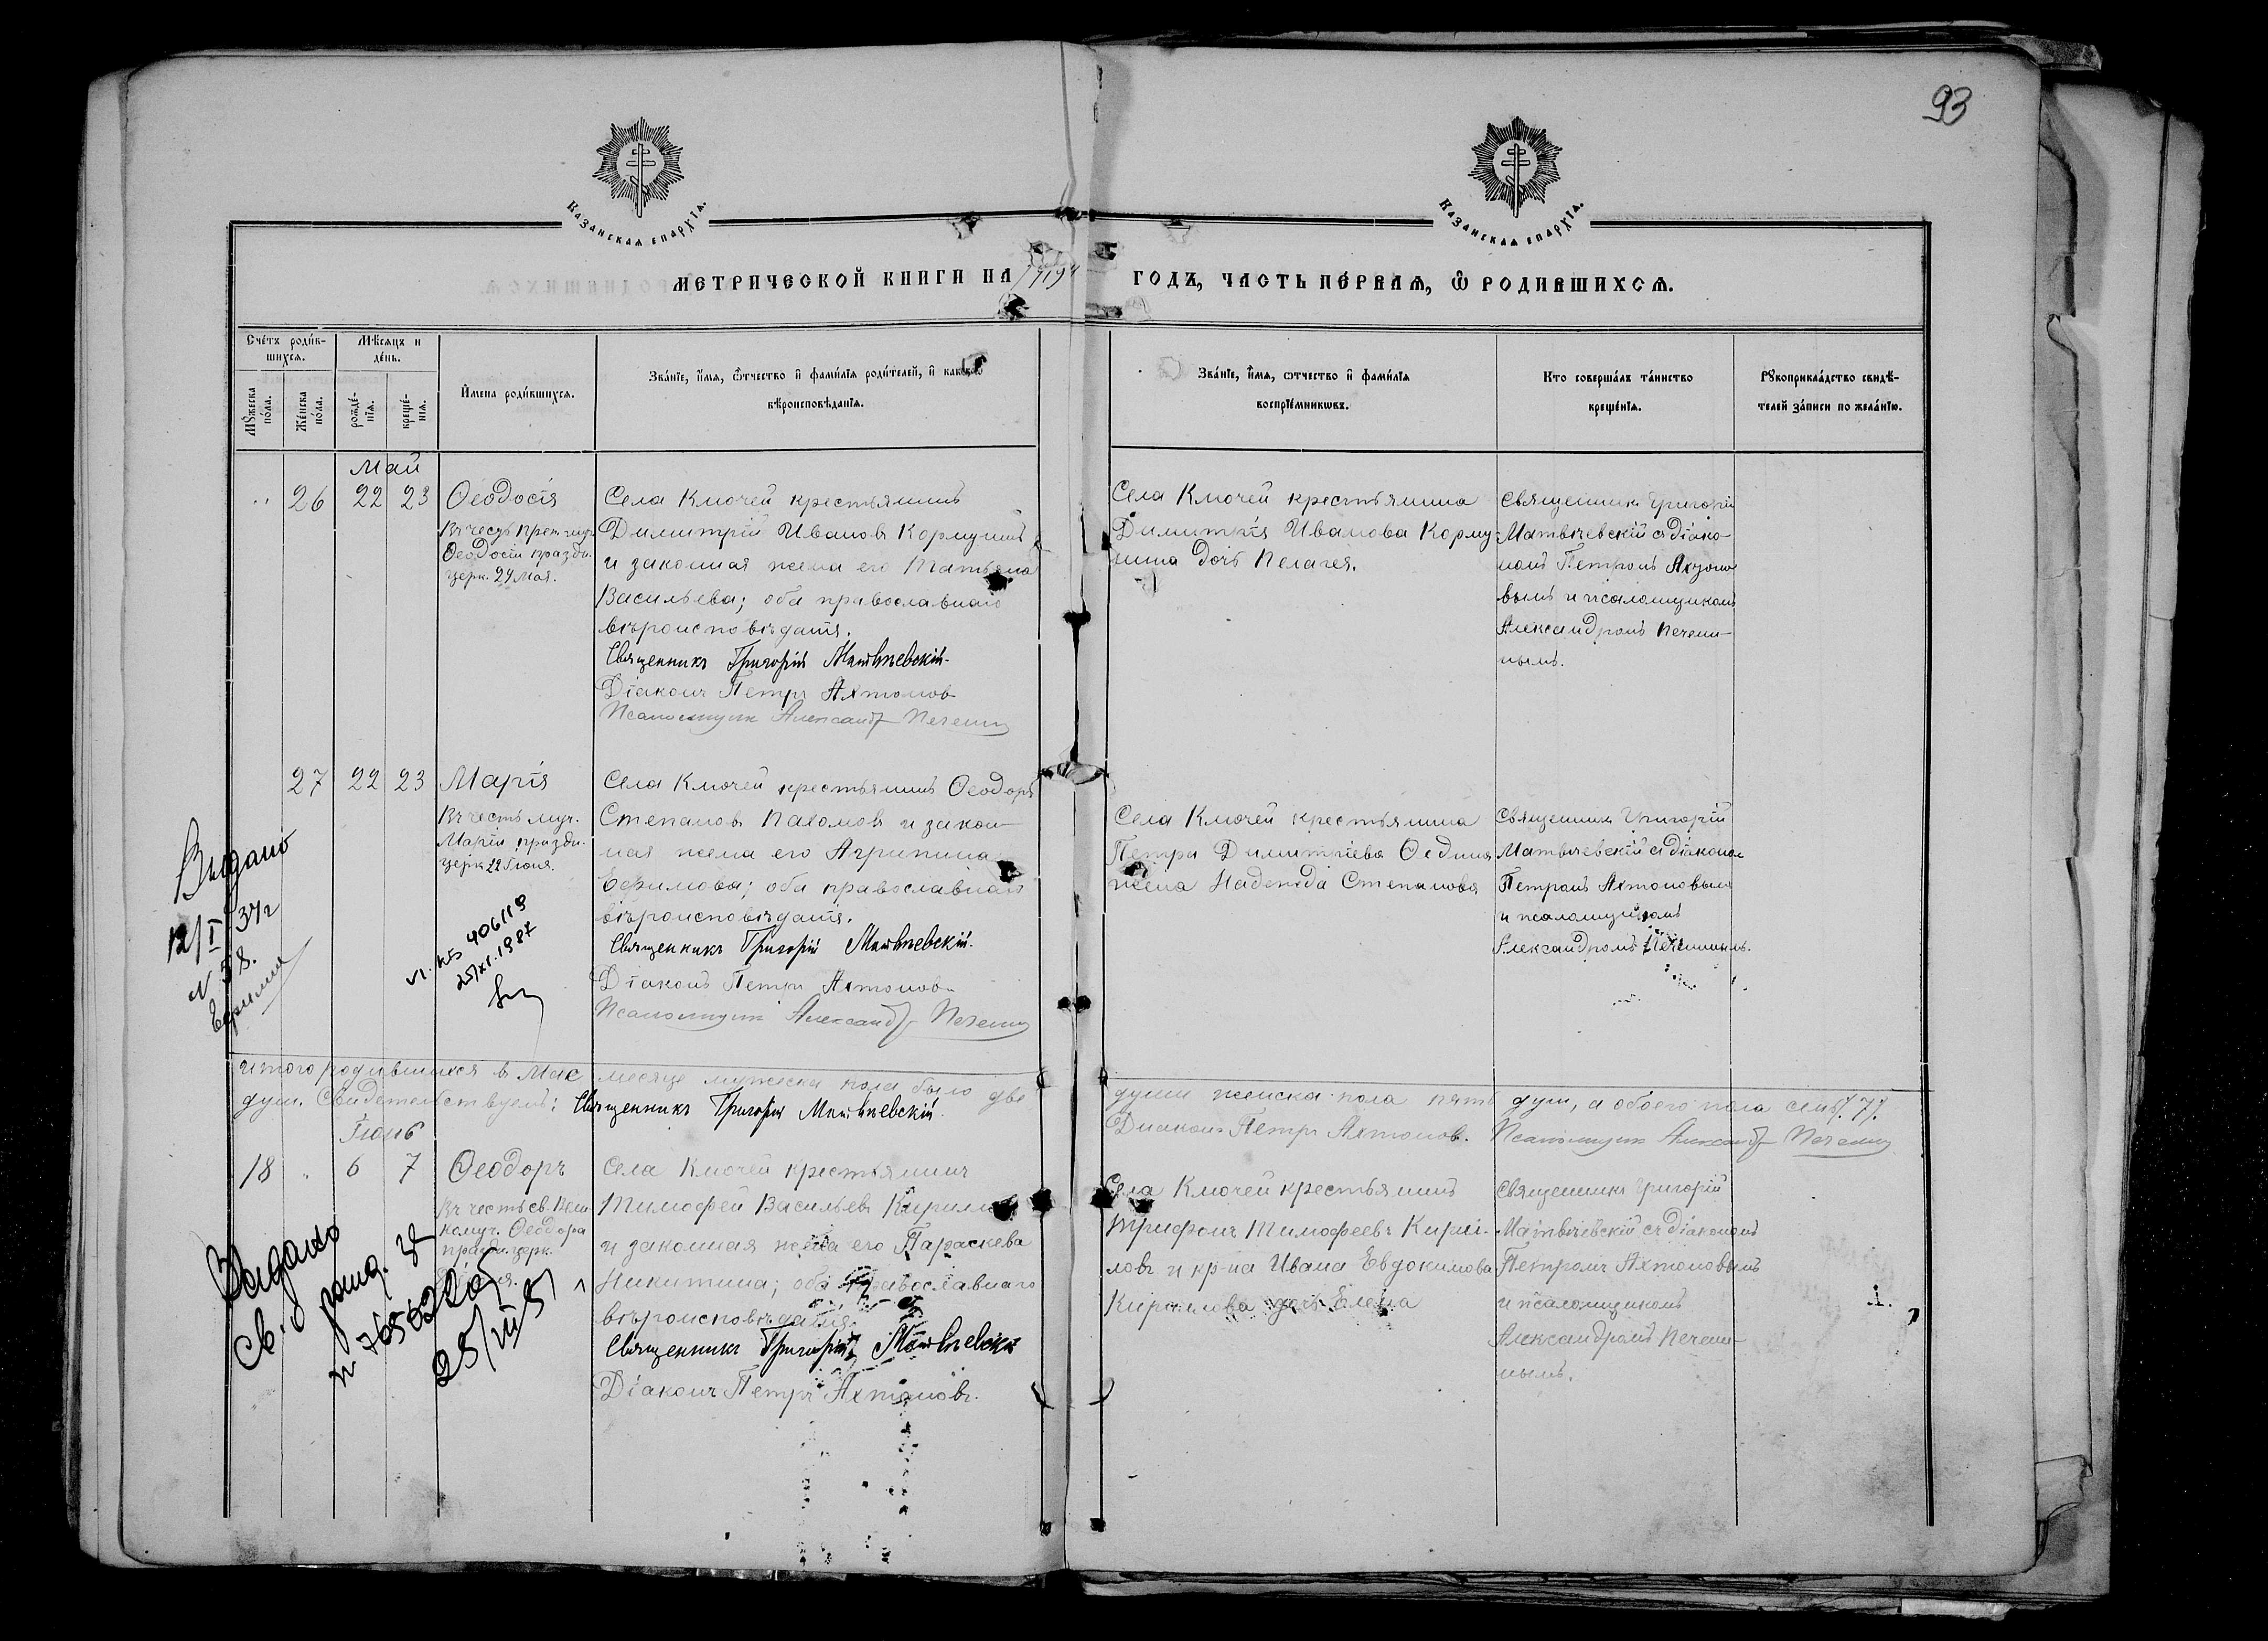 93
Казанская епархїя.
Казанская епархїя.
МЕТРИЧЕСКОЙ КНИГИ НА 1919 ГОДЪ, ЧАСТЬ ПЕРВАЯ, Ѿ РОДИВШИХСЯ.
Счетъ родившихся.
Мужеска пола.
Женска пола.
Мѣсяцъ и день.
рожденїя.
крещенїя.
Имена родившихся.
Званїе, имя, ѿтчество и фамилїя родителей, и какого
вѣроисповѣданїя.
Званїе, имя, ѿтчество и фамилїя
воспрїемниковъ.
Кто совершалъ таинство
крещенїя.
Рукоприкладство свидѣ-
телей записи по желанїю.
Май
26 22 23 Ѳеодосія
Въ честь
Ѳеодосіи праздн.
церк. 29 мая.
Села Ключей крестьянинъ
Димитрій Ивановъ Кормушинъ
и законная жена его Татьяна
Васильева; оба православнаго
вѣроисповѣданія.
Священникъ Григорій Матвѣевскій.
Діаконъ Петръ Ахтоновъ
Псаломщик Александр Печенин
Села Ключей крестьянина
Димитрія Иванова Корму-
шина дочь Пелагея.
Священникъ Григорій
Матвѣевскій съ діако-
номъ Петромъ Ахтоно
вымъ и псаломщикомъ
Александромъ Печени-
нымъ.
27 22 23 Марія
Въ честь муч.
Маріи праздн.
церк.
Села Ключей крестьянинъ Ѳеодоръ
Степановъ Пахомовъ и закон-
ная жена его Агрипина
Ефимова; оба православнаго
вѣроисповѣданія.
Священникъ Григорій Матвѣевскій.
Діаконъ Петръ Ахтоновъ
Псаломщик Александр Печенин
Села Ключей крестьянина
Петра Димитріева
жена Надежда Степанова
Священникъ Григорій
Матвѣевскій съ діакономъ
Петромъ Ахтоновымъ
и псаломщикомъ
Александромъ Печенинымъ.
Выдано
12/I 37г
N 58.
406119
25/XI.1987
Итого родившихся в Мае месяце мужеска пола было две души женска пола пять душ, а обоего пола семь /7/.
душ. Свидетельствуемъ: Священникъ Григорій Матвѣевскій. Диаконъ Петръ Ахтонов. Псаломщик Александр Печенин
Іюнь
18 6 7 Ѳеодоръ
Въ честь св. Вели
комуч. Ѳеодора
праздн. церк.
Села Ключей крестьянинъ
Тимофей Васильевъ
и законная жена его Параскева
Никитина; оба православнаго
вѣроисповѣданія.
Священникъ Григорій Матвѣевскій
Діаконъ Петръ Ахтоновъ.
Села Ключей крестьянинъ
Трифонъ Тимофеевъ Кирил-
ловъ и кр-на Ивана Евдокимова
Кириллова дочь Елена
Священникъ Григорій
Матвѣевскій съ діакономъ
Петромъ Ахтоновымъ
и псаломщикомъ
Александромъ Печени-
нымъ.
Выдано
Св. о рожд.